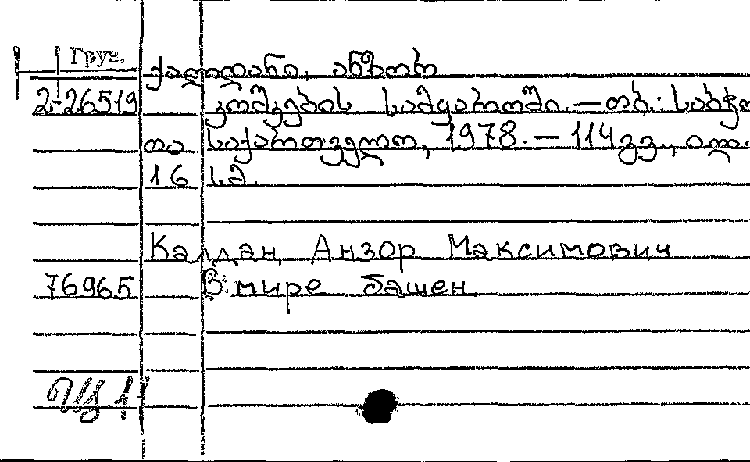 Груз.
ქალდანი, ანზორ
2-26519 კოშკების სამყაროში. — თბ.: საბჭო
თა საქართველო, 1978. — 114 გვ., ილ.
16 სმ.
Калдан, Анзор Максимович
76965 В мире башен